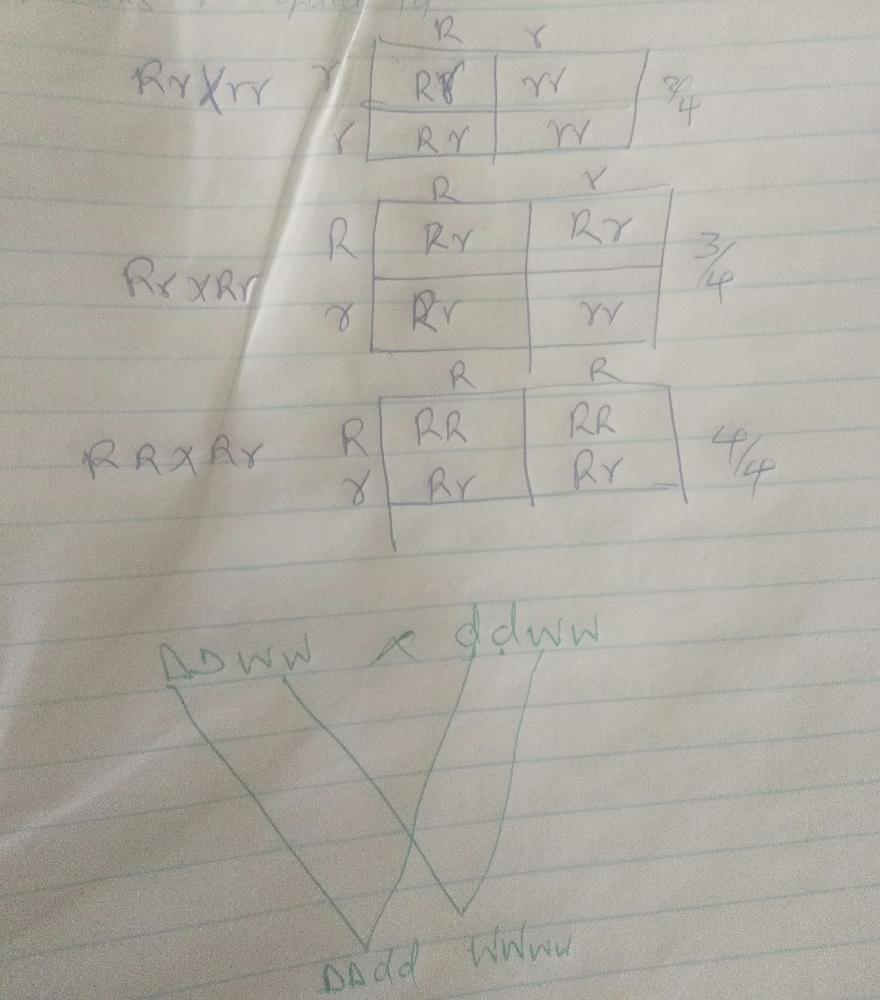 R r
Rr X rr r Rr rr 2/4
r Rr rr
R r
R Rr Rr 3/4
Rr x Rr
r Rr rr
R R
RR x Rr R RR RR 4/4
r Rr Rr
DDWW x ddWW
DDdd WWWW